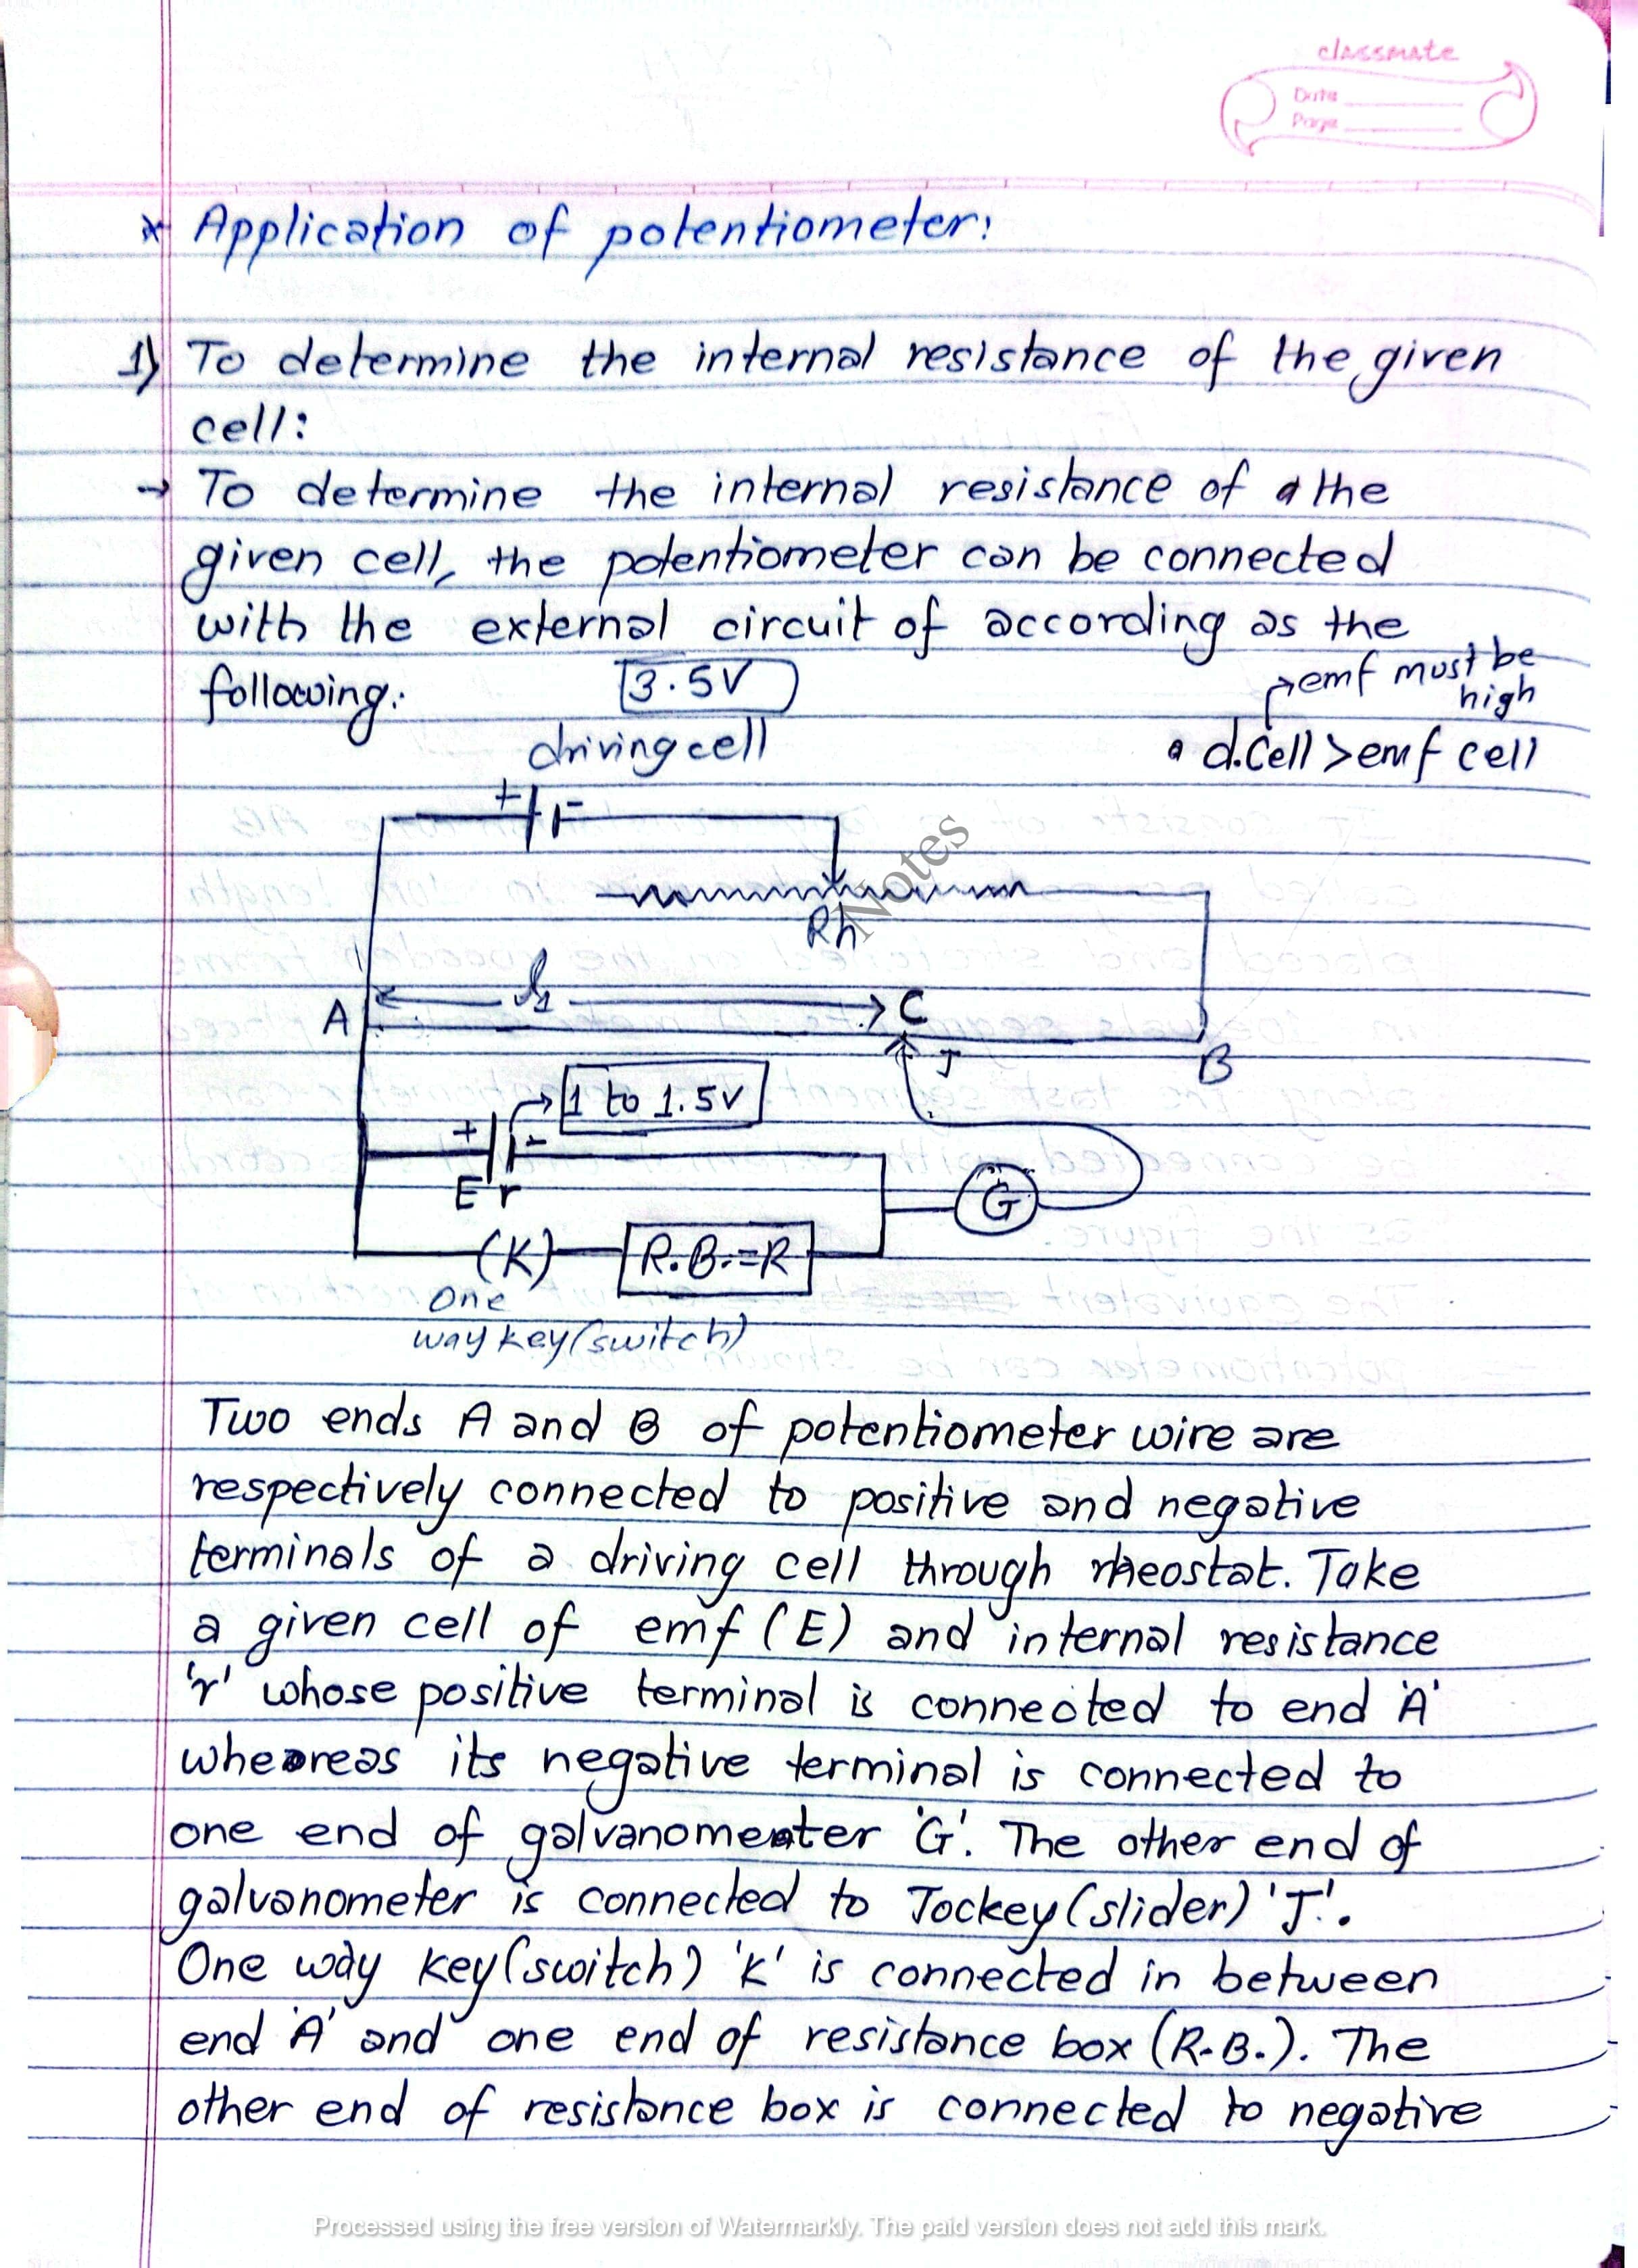 classmate
Date
Page
* Application of potentiometer:
1) To determine the internal resistance of the given
cell:
→ To determine the internal resistance of the
given cell, the potentiometer can be connected
with the external circuit of according as the
following:
3.5V
emf must be
high
driving cell
• d.Cell > emf cell
+ -
Rh
Notes
A l1 C
J B
1 to 1.5V
+ -
E r
G
(K) R.B.=R
One
way key (switch)
Two ends A and B of potentiometer wire are
respectively connected to positive and negative
terminals of a driving cell through rheostat. Take
a given cell of emf (E) and internal resistance
'r' whose positive terminal is connected to end 'A'
whereas its negative terminal is connected to
one end of galvanometer 'G'. The other end of
galvanometer is connected to Jockey (slider) 'J'.
One way key (switch) 'K' is connected in between
end 'A' and one end of resistance box (R.B.). The
other end of resistance box is connected to negative
Processed using the free version of Watermarkly. The paid version does not add this mark.